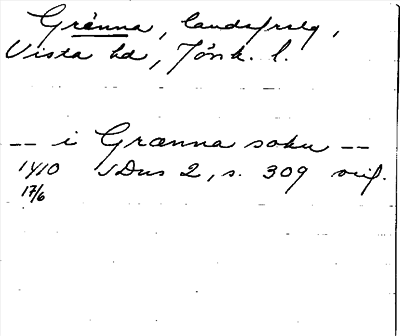 Gränna, landsfrslg,
Vista hd, Jönk. l.
-- i Grænna sokn --
1410 SDns 2, s. 309 orig.
17/6